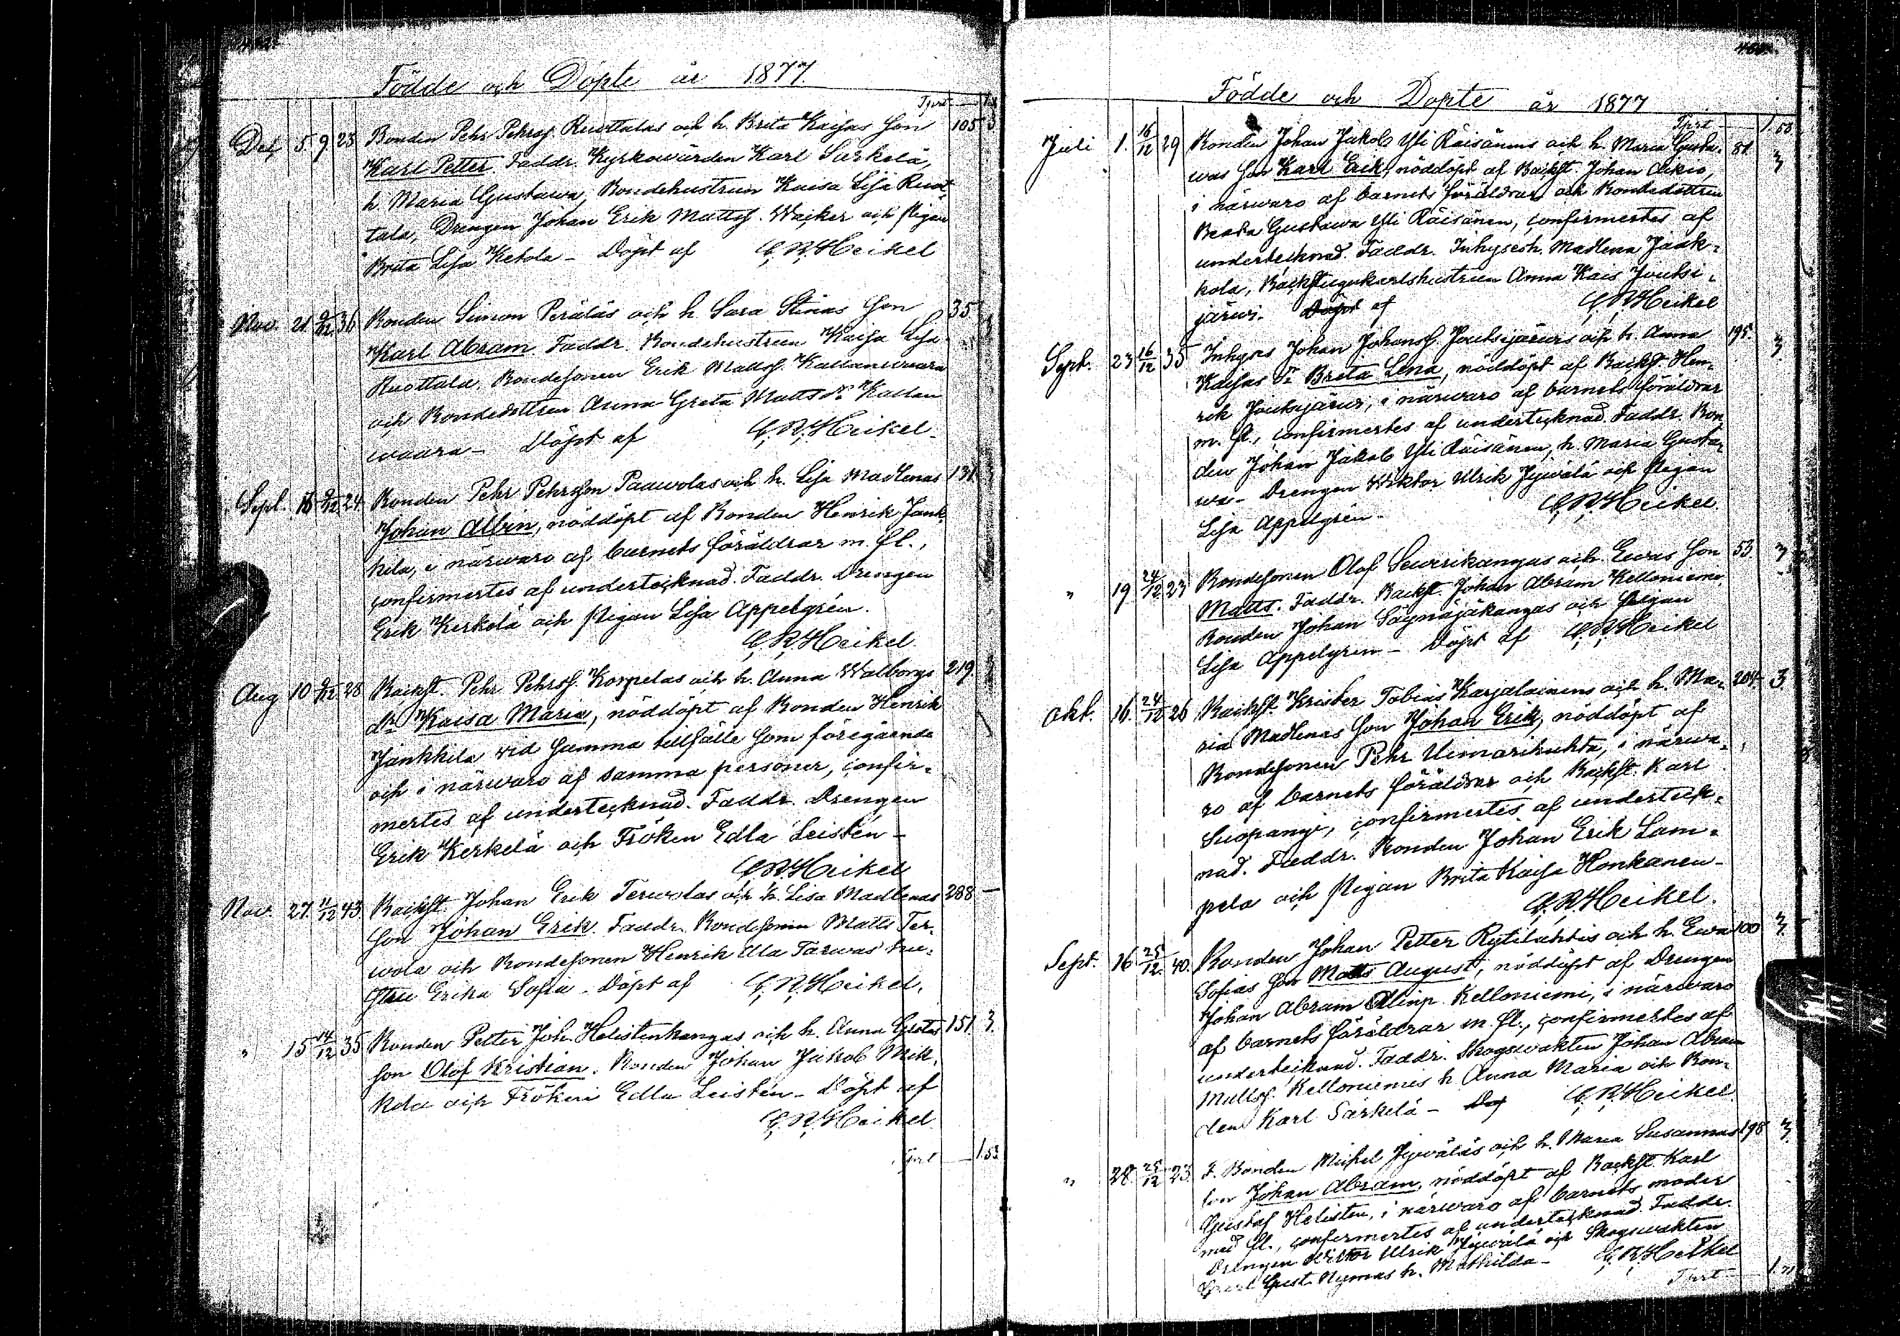 Födde och Döpte år 1877.
Tprt — 1.
Dec. 5. 9. 23 Bonden Pehr Pehrss. Ruottalas och h. Brita Kaisas Son 105 3
Karl Petter. Faddr. Kyrkowärden Karl Särkelä,
h. Maria Gustawa, Bondehustrun Kaisa Lisa Ruot-
tala, Drengen Johan Erik Mattss. Waiker och Pigan
Brita Lisa Ketola – Döpt af C. R. Heikel
Nov. 21. 9/12 36 Bonden Simon Peräläs och h. Sara Stinas Son 35
Karl Abram. Faddr. Bondehustrun Kaisa Lisa
Ruottala. Bondesonen Erik Mattss. Kallanwaara
och Bondedottren Anna Greta Mattsdr. Kallan
waara – Döpt af C. R. Heikel.
Sept. 15 9/12 24 Bonden Pehr Pehrsson Paawolas och h. Lisa Madlenas 131 3
Johan Albin, nöddöpt af Bonden Henrik Jänk-
kila, i närwaro af barnets föräldrar m. fl.,
confirmertes af undertecknad. Faddr. Drengen
Erik Kerkelä och Pigan Lisa Appelgrén.
C. R. Heikel.
Aug 10 9/12 28 Backst. Pehr Pehrss. Korpelas och h. Anna Walborgs 219 3
dr. Kaisa Maria, nöddöpt af Bonden Henrik
Jänkkila wid samma tillfälle som föregående
och i närwaro af samma personer, confir-
mertes af undertecknad. Faddr. Drengen
Erik Kerkelä och Fröken Edla Leistén –
C. R. Heikel
Nov. 27. 11/12 43 Backst. Johan Erik Terwolas och h. Lisa Madlenas 288 –
Son Johan Erik. Faddr. Bondesonen Matts Ter-
wola och Bondesonen Henrik Ala Tarwas hu-
stru Erika Sofia – Döpt af C. R. Heikel.
" 15 14/12 35 Bonden Petter Joh. Helistenkangas och h. Anna Gretas 151 3.
Son Olof Kristian. Bonden Johan Jakob Mik-
kola och Fröken Edla Leistén – Döpt af
C. R. Heikel
Tprt — 1.53
Födde och Döpte år 1877
Tprt — 1.53
Juli 1. 16/12 29 Bonden Johan Jakob Yli Räisänens och h. Maria Gusta- 81. 3
was Son Karl Erik, nöddöpt af Backst. Johan Aikio,
i närwaro af barnets föräldrar och Bondedottren
Beata Gustawa Yli Räisänen, confirmertes af
undertecknad. Faddr. Inhysesh. Madlena Jaak-
kola, Backstugukarlshustrun Anna Kais Jouksi-
järwi. Döpt af C. R. Heikel
Sept. 23 16/12 35 Inhyses Johan Johanss. Jouksijärwis och h. Anna 195. 3
Kaisas dr. Brita Lena, nöddöpt af Backst. Hen-
rik Jouksijärwi, i närwaro af barnets föräldrar
m. fl., confirmertes af undertecknad. Faddr. Bon-
den Johan Jakob Yli Räisänen, h. Maria Gusta-
wa – Drengen Wiktor Ulrik Jywälä och Pigan
Lisa Appelgrén – C. R. Heikel.
" 19 24/12 23 Bondesonen Olof Seurikangas och h. Ewas Son 53. 3
Matts. Faddr. Backst. Johan Abram Kelloniemi
Bonden Johan Säynäjäkangas och Pigan
Lisa Appelgren – Döpt af C. R. Heikel
Okt. 16. 24/12 26 Backst. Krister Tobias Karjalainens och h. Ma- 204. 3.
ria Madlenas Son Johan Erik, nöddöpt af
Bondesonen Pehr Uimarihuhta, i närwa-
ro af barnets föräldrar och Backst. Karl
Suopangi, confirmertes af underteck-
nad. Faddr. Bonden Johan Erik Lam-
pela och Pigan Brita Kaisa Honkanen –
C. R. Heikel.
Sept. 16 25/12 40. Bonden Johan Petter Rytilahtis och h. Ewa 100 3.
Sofias Son Matts August, nöddöpt af Drengen
Johan Abram Kelloniemi, i närwaro
af barnets föräldrar m. fl., confirmertes af
undertecknad. Faddr. Skogswakten Johan Abram
Mattss. Kelloniemis h. Anna Maria och Bon-
den Karl Särkelä – Döp C. R. Heikel.
" 28. 25/12 23. F. Bonden Mickel Jywäläs och h. Maria Susannas 198 3
Son Johan Abram, nöddöpt af Backst. Karl
Gustaf Helisten, i närwaro af barnets moder
med fl., confirmertes af undertecknad. Faddr.
Drengen Wiktor Ulrik Jywälä och Skogswakten
Carl Gust. Nymas h. Mathilda – C. R. Heikel
Tprt — 1.